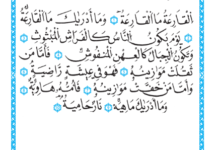 ٱلْقَارِعَةُ ۝١ مَا ٱلْقَارِعَةُ ۝٢ وَمَآ أَدْرَىٰكَ مَا ٱلْقَارِعَةُ ۝٣
يَوْمَ يَكُونُ ٱلنَّاسُ كَٱلْفَرَاشِ ٱلْمَبْثُوثِ ۝٤
وَتَكُونُ ٱلْجِبَالُ كَٱلْعِهْنِ ٱلْمَنفُوشِ ۝٥ فَأَمَّا مَن
ثَقُلَتْ مَوَٰزِينُهُۥ ۝٦ فَهُوَ فِى عِيشَةٍ رَّاضِيَةٍ ۝٧
وَأَمَّا مَنْ خَفَّتْ مَوَٰزِينُهُۥ ۝٨ فَأُمُّهُۥ هَاوِيَةٌ ۝٩
وَمَآ أَدْرَىٰكَ مَا هِيَهْ ۝١٠ نَارٌ حَامِيَةٌۢ ۝١١